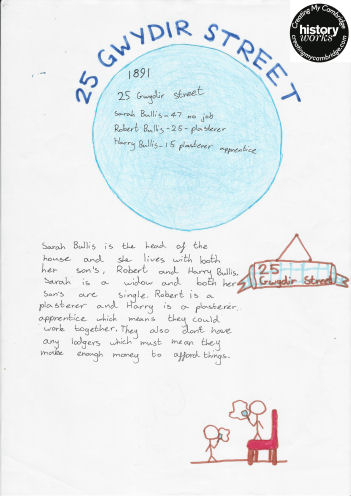 Creating My Cambridge
history
works
creatingmycambridge.com
25 GWYDIR STREET
1891
25 Gwydir street
Sarah Bullis - 47 no job
Robert Bullis - 25 - plasterer
Harry Bullis - 15 plasterer apprentice
Sarah Bullis is the head of the
house and she lives with both
her son's, Robert and Harry Bullis.
Sarah is a widow and both her
son's are single. Robert is a
plasterer and Harry is a plasterer
apprentice which means they could
work together. They also don't have
any lodgers which must mean they
make enough money to afford things.
25
Gwydir Street